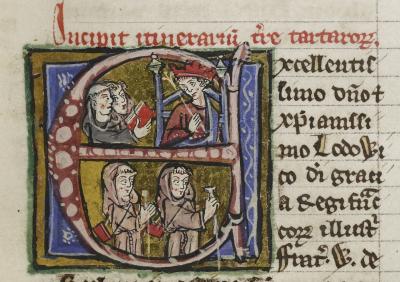 Incipit itinerariū t̄re tartaroꝝ.
Excellentis
simo dn̄o ⁊
xp̄ianissi
mo Lodowi
co di graci
a Regi
coꝝ illustr̄
ffrat̄. W. de